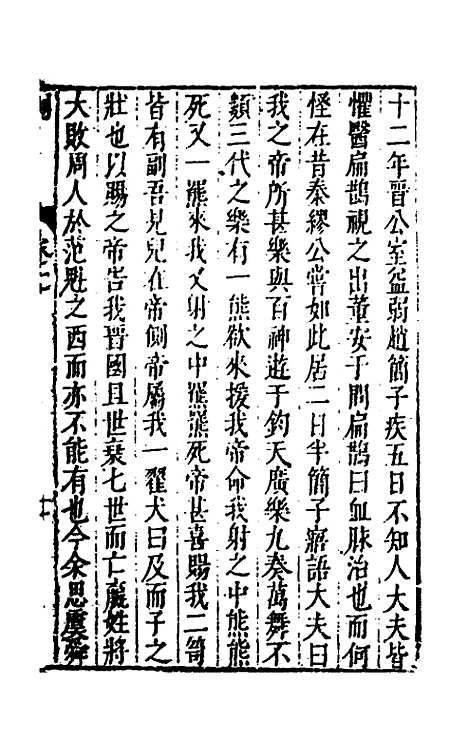 十二年晉公室益弱趙簡子疾五日不知人大夫皆
懼醫扁鵲視之出董安于問扁鵲曰血脉治也而何
怪在昔秦繆公嘗如此居二日半簡子寤語大夫曰
我之帝所甚樂與百神遊于鈞天廣樂九奏萬舞不
類三代之樂有一熊欲來援我帝命我射之中熊熊
死又一羆來我又射之中羆羆死帝甚喜賜我二笥
皆有副吾見兒在帝側帝屬我一翟犬曰及而子之
壯也以賜之帝告我晉國且世衰七世而亡嬴姓將
大敗周人於范魁之西而亦不能有也今余思虞舜